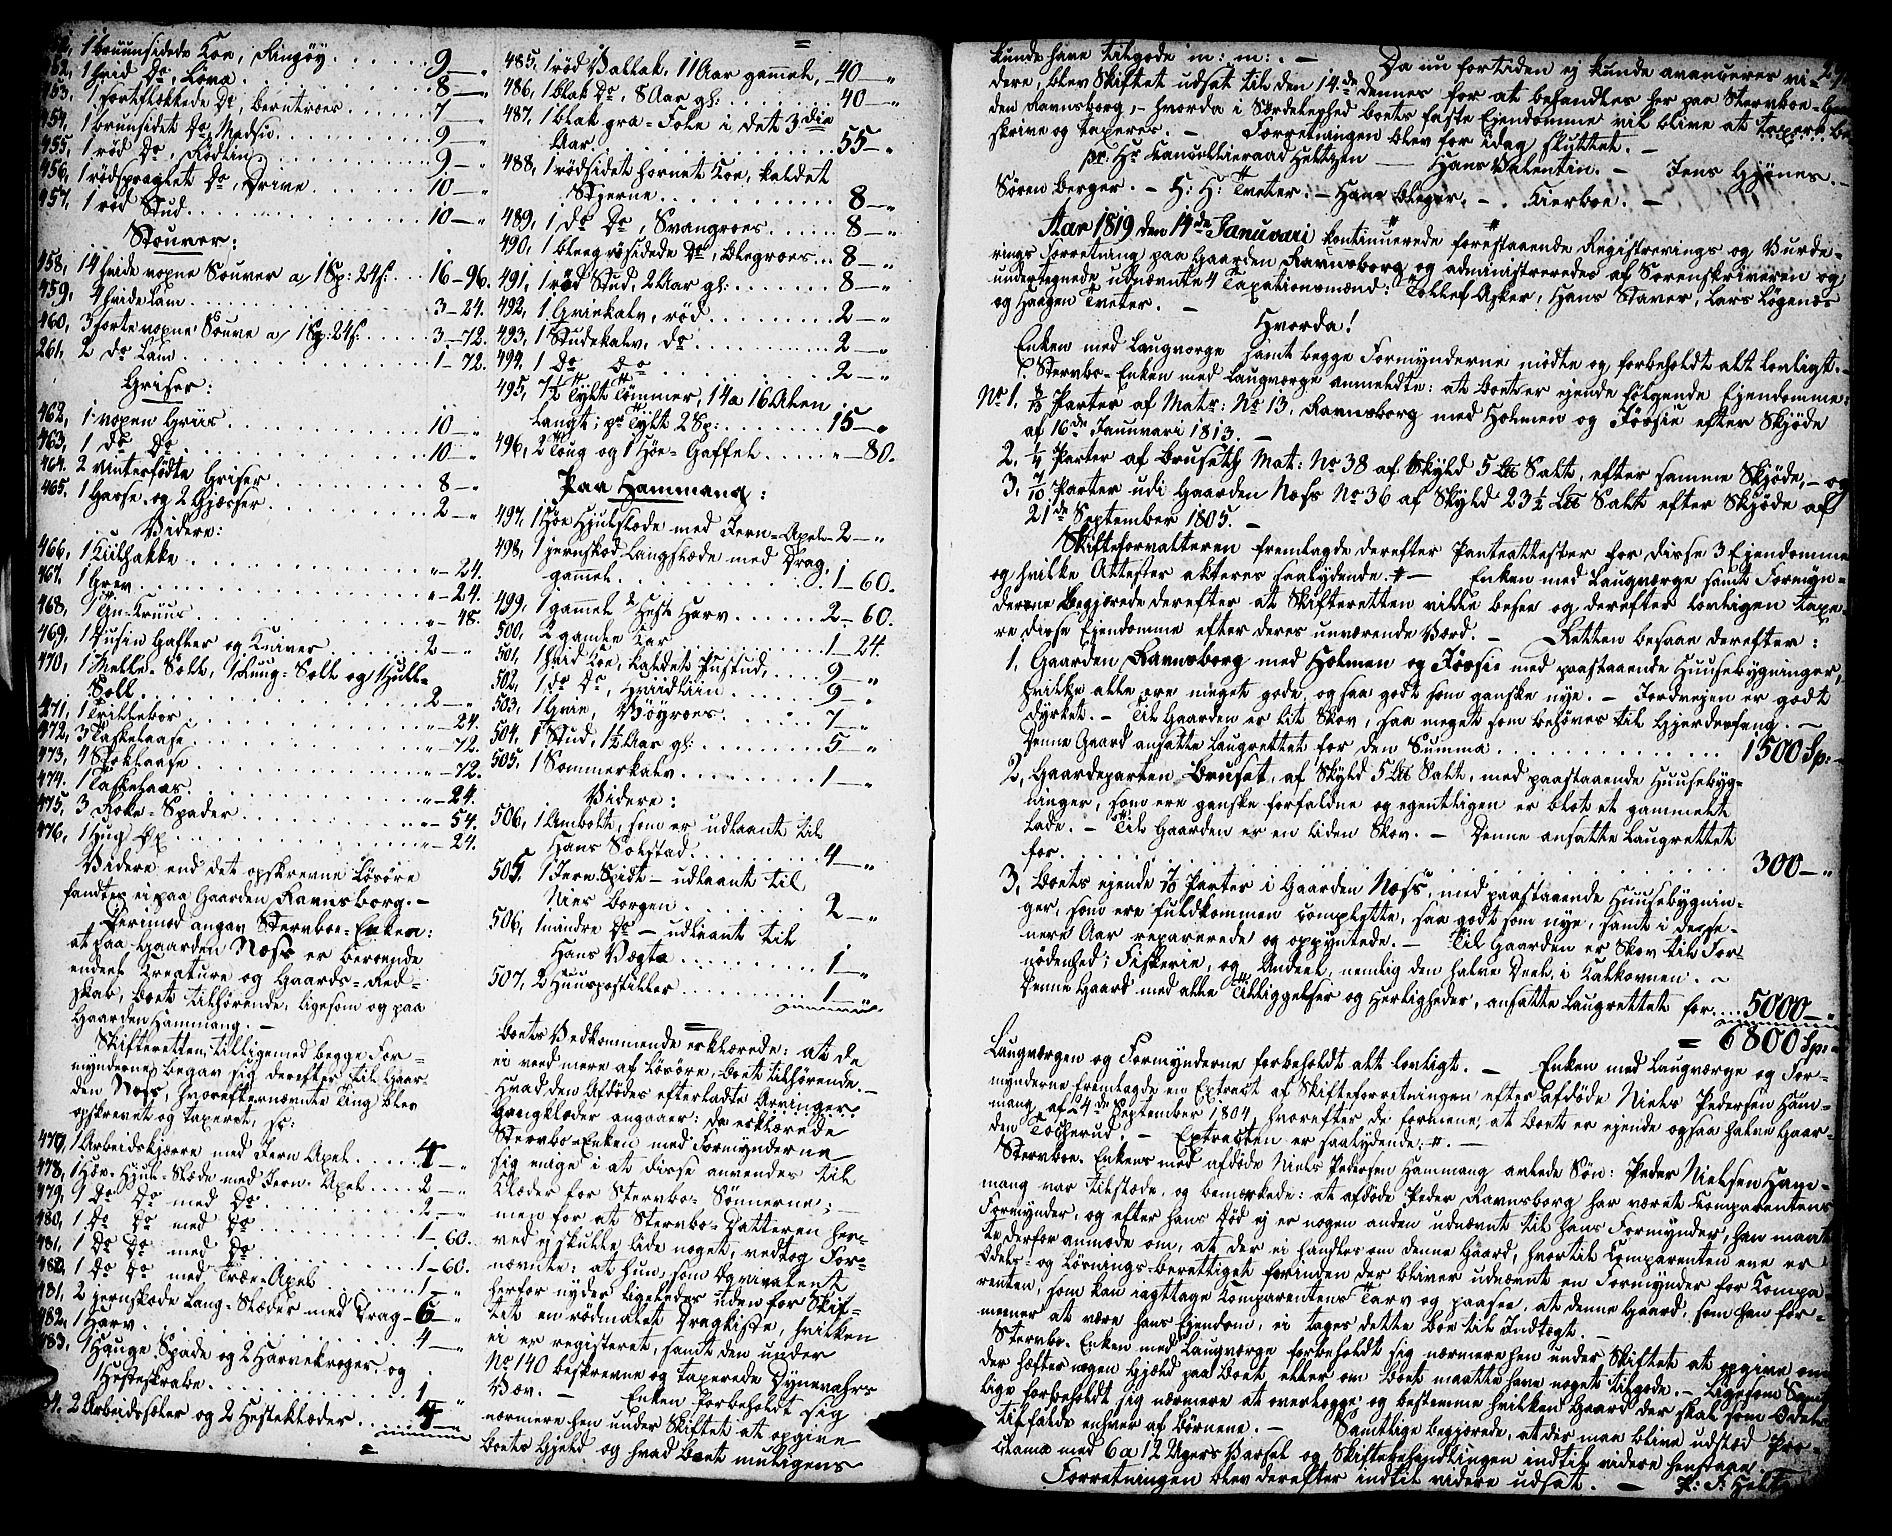 1 bruunsidede Koe, Ringöy . . . . . . 9 — „
452, 1 hvid Do, Löva . . . . . . 8 — „
453, 1 sortflekkede Do, Berntroes . . . . 7 — „
454, 1 brunsidet Do, Madsie . . . . . 9 — „
455, 1 rød Do, Rödlin . . . . . . 9 — „
456, 1 rødspraglet Do, Drive . . . . . 10 — „
457, 1 rød Stud . . . . . . 10 — „
Souver:
458, 14 hvide voxne Souver a/ 1 Sp: 24 s. . . . 16 — 96.
459, 4 hvide Lam . . . . . . 3 — 24.
460, 3 sorte voxne Souve a/ 1 Sp: 24 s: . . . . 3 — 72.
261, 2 do Lam . . . . . . 1 — 72.
Griser:
462, 1 voxen Griis . . . . . . 10 — „
463, 1 do Do . . . . . . 10 — „
464, 2 vinterfødte Griser . . . . . 8 — „
465, 1 Gasse og 2 Gjæsser . . . . . 2 — „
Videre:
466, 1 Kulhakke . . . . . . „ — 24.
467, 1 Grev . . . . . . „ — 24.
468, 1 Kruus . . . . . . „ — 48.
469, 1 Dusin Gafler og Kniver . . . . 2 — „
470, 1 Melle-Sold, 1 Rug-Sold og 1 Hull-
Sold . . . . . . 2 — „
471, 1 Trillebør . . . . . . „ — 24.
472, 3 Taskelaase . . . . . . „ — 72.
473, 4 Stoklaase . . . . . . „ — 72.
474, 1 Taskelaas . . . . . . „ — 24.
475, 3 Roke-Spader . . . . . . „ — 54.
476, 1 Hug Øx . . . . . . „ — 24.
Videre end det opskrevne Løsøre
fandtes ei paa Gaarden Ravnsborg. —
Derimod angav Stervboe-Enken:
at paa Gaarden Næss er beroende
endeel Creature og Gaards-Red-
skab, Boet tilhørende, ligesom og paa
Gaarden Hammang. —
Skifteretten, tilligemed begge For-
mynderne, begav sig derefter til Gaar-
den Næss, hvorefternævnte Ting blev
opskrevet og taxeret, sc:
477, 1 Arbeidskjærre med Jern Axel . . . . 4 — „
478, 1 Høe-Hjul-Slæde med Jern-Axel . . . . 2 — „
479, 1 do Do med Do . . . . . . 2 — „
480, 1 Do Do med Do . . . . . . 1 — 60.
481, 1 Do Do med Do . . . . . . 1 — 60.
480, 1 Do Do med Træe-Axel . . . . . 1 — „
481, 2 jernskoede Lang-Slæder med Drag - 6 — „
482, 1 Harv . . . . . . 4 — „
483, 1 Hauge Spade og 2 Harvekroger, og
1 Hesteskrabe . . . . . . 1 „
2 Arbeidsseler og 2 Hesteklæder . . . 4 — „
485, 1 rød Vallak, 11 Aar gammel, - 40 — „
486, 1 blak Do, 8 Aar gl: . . . . . 40 — „
487, 1 blak-graa-Fole i det 3die
Aar . . . . . . 55 — „
488, 1 rødsidet hornet Koe, kaldet
Stjerne . . . . . . 8 — „
489, 1 do Do, Svangroes . . . . . 8 — „
490, 1 bleegrøsidede Do, Bleegroes . . . 8 — „
491, 1 rød Stud, 2 Aar gl: . . . . . 8 — „
492, 1 Qviekalv, rød . . . . . . 2 — „
493, 1 Studekalv, do . . . . . . 2 — „
494, 1 Do Do . . . . . . 2 — „
495, 7½ Tylt Tömmer, 14 a 16 Alen
Langt; pr Tylt 2 Sp: . . . . . 15 — „
496, 2 Toug og 1 Høe-Gaffel . . . . „ — 80.
Paa Hammang:
497, 1 Høe Hjulslæde med Jern-Axel - 2 — „
498, 1 jernskoed Langslæde med Drag,
gammel . . . . . . 1 — 60.
499, 1 gammel 2 Heste Harv . . . . . 2 — 60.
500, 2 gamle Kar . . . . . . 1 — 24.
501, 1 hvid Koe, kaldet Justud, . . . . 9 — „
502, 1 do Do, Hviidliin . . . . . 9 „
503, 1 Qvie, Böyroes . . . . . . 7 — „
504, 1 Stud, 1½ Aar gl: . . . . . 5 — „
505, 1 Sommerkalv . . . . . . 1 — „
Videre:
506, 1 Ambolt, som er udlaant til
Hans Solstad . . . . . . 4 — „
505, 1 Jern Spidt — udlaant til
Niels Borgen . . . . . . 2 — „
506, 1 mindre Do — udlaant til
Hans Vægta . . . . . . 1 — „
507, 2 Huuspostiller . . . . . . 1 — „
Boets Vedkommende erklærede: at de
ei veed mere af Løsøre, Boet tilhørende. —
Hvad den Afdödes efterladte Arvinger
Gangklæder angaaer: da erklærede
Stervbo-Enken med Formynderne
sig enige i at disse anvendes til
Klæder for Stervbo-Sønnerne; —
men for at Stervbo-Datteren her-
ved ej skulle lide noget, vedtog For-
nævnte: at hun, som Æqvivalent
herfor nyder ligeledes uden for Skif-
tet en rødmalet Dragkiste, hvilken
ei er registeret, samt den under
No 140 beskrevne og taxerede Dynevahrs
Væv. — Enken forbeholdt sig
nærmere hen under Skiftet at opgive
Boets Gjeld og hvad Boet muligens
kunde have tilgode m: m: . — Da nu fortiden ej kunde avancerer vi-
dere, blev Skiftet udsat til den 14de dennes for at behandles her paa Stervboe-
den Ravnsborg, — hvorda i Særdeleshed Boets faste Ejendomme vil blive at taxere, be-
skrive og taxeres. — Forretningen blev for idag sluttet. —
pr: Hr Cancellieraad Heltzen — Hans Valentin. — Jens Gjönes. —
Sören Berger. — H. H: Tveter. — Hans Bleger. — Kierboe. —
Aar 1819 den 14de Januvari kontinuerede forestaaende Registrerings og Vurde-
rings Forretning paa Gaarden Ravnsborg og administreredes af Sorenskriveren og
undertegnede udnævnte 4 Taxationsmænd: Tollef Asker, Hans Staver, Lars Løgenæs
og Haagen Tveter. —
Hvorda!
Enken med Laugvorge samt begge Formynderne mödte og forbeholdt alt lovligt. —
Stervbo-Enken med Laugværge anmeldte: at Boet er ejende følgende Ejendomme:
No 1. Parter af Matr: No 13, Ravnsborg med Holmen og Jössie efter Skjöde
af 16de Januvari 1813. —
2. ¼ Parter af Bruseth Mat: No 38 af Skyld 5 Lis Salt, efter samme Skjöde, — og
3. 7/10 Parter udi Gaarden Næss No 36 af Skyld 23½ Lis Salt efter Skjöde af
21de September 1805. —
Skifteforvalteren fremlagde derefter Panteattester for disse 3 Ejendomme
og hvilke Attester akteres saalydende. # — Enken med Laugværge samt Formyn-
derne begjærede derefter at Skifteretten vilde besee og derefter lovligen taxe-
re disse Ejendomme efter deres nuværende Værd. — Retten besaae derefter:
1. Gaarden Ravnsborg med Holmen og Jössie med paastaaende Huusebygninger,
hvilke alle ere meget gode, og saa godt som ganske nye. — Jordvejen er godt
dyrket. — Til Gaarden er lit Skov, saa meget som behöves til Gjærdesfang. —
Denne Gaard ansatte Laugrettet for den Summa . . . . . . 1500 Sp: —
2, Gaardeparten Bruset, af Skyld 5 Lis Salt, med paastaaende Huusebyg-
ninger, som ere ganske forfaldne og egentligen er blot et gammelt
Lade. — Til Gaarden er en liden Skov. — Denne ansatte Laugrettet
for . . . . . . 300 — „
3, Boets ejende 7/10 Parter i Gaarden Næss, med paastaaende Huusebygnin-
ger, som ere fuldkommen complette, saa godt som nye, samt i desse-
nere Aar reparerede og oppyntede. — Til Gaarden er Skov til For-
nödenhed; Fiskerie, og Andeel, nemlig den halve Deel, i Kalkovnen. —
Denne Gaard med alle Tilliggelser og Herligheder, ansatte Laugrettet for . . . 5000 — „
= 6800 Sp: —
Laugværgen og Formynderne forbeholdt alt lovligt. — Enken med Laugværge og For-
mynderne fremlagde en Extract af Skifteforretningen efter afdöde Niels Pedersen Ham-
mang af 24de September 1804, hvorefter de formene, at Boet er ejende ogsaa halve Gaar-
den Tokkerud. — Extracten er saalydende: #. —
Stervboe-Enkens med afdöde Niels Pedersen Hammang avlede Søn: Peder Nielsen Ham-
mang var tilstæde, og bemærkede: at afdöde Peder Ravnsborg har været Komparentens
Formynder, og efter hans Död ej er nogen anden udnævnt til hans Formynder, han maat-
te derfor anmode om, at der ei handles om denne Gaard, hvortil Comparenten ene er
Odels- og Løsnings-berettiget forinden der bliver udnævnt en Formynder for Kompa-
renten, som kan iagttage Komparentens Tarv og paasee, at denne Gaard, som han for-
mener at være hans Ejendom, ei tages dette Boe til Indtægt. —
Stervbo-Enken med Laugværge forbeholdt sig nærmere hen under Skiftet at opgive om
der hæfter nogen Gjæld paa Boet, eller om Boet maatte have noget tilgode. — Ligesom
lige forbeholdt sig nærmere at overlægge og bestemme hvilken Gaard der skal som Odels
tilfalde enhver af Börnene. — Samtlige begjærede, at der maa blive udstæd Pro-
clama med 6 a 12 Ugers Varsel og Skiftebehandlingen indtil videre henstaae.
Forretningen blev derefter indtil videre udsat. —